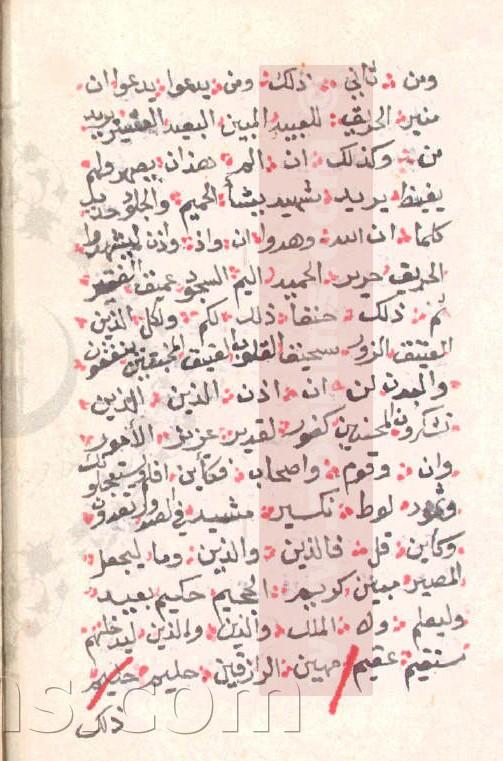 ومن ثاني ذلك ومن يدعوا يدعوا ان
منير الحريق للعبيد المبين البعيد العشير يريد
من وكذلك ان الم هذان يصهر ولهم
يغيظ يريد شهيد يشأ الحميم والجلود حديد
كلما ان الله وهدوا ان واذ واذن ليشهدوا
الحريق حرير الحميد اليم السجود عميق الفقير
ثم ذلك حنفا ذلك لكم ولكل الذين
العتيق الزور سحيق القلوب العتيق المخبتين ينفقون
والبدن لن ان اذن الذين الذين
تشكرون المحسنين كفور لقدير عزيز الأمور
وان وقوم واصحاب فكأين افلم يستعجلونك
وثمود لوط نكير مشيد في الصدور تعدون
وكأين قل فالذين والذين وما ليجعل
المصير مبين كريم الجحيم حكيم بعيد
وليعلم ولا الملك والذين والذين ليدخلنهم
مستقيم عقيم مهين الرازقين حليم حليم
ذلك
ns.com